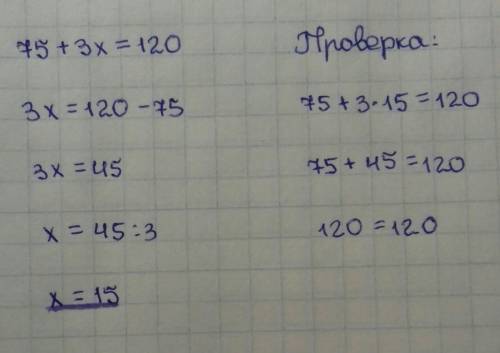 75 + 3x = 120
3x = 120 - 75
3x = 45
x = 45 : 3
x = 15
Проверка:
75 + 3 · 15 = 120
75 + 45 = 120
120 = 120